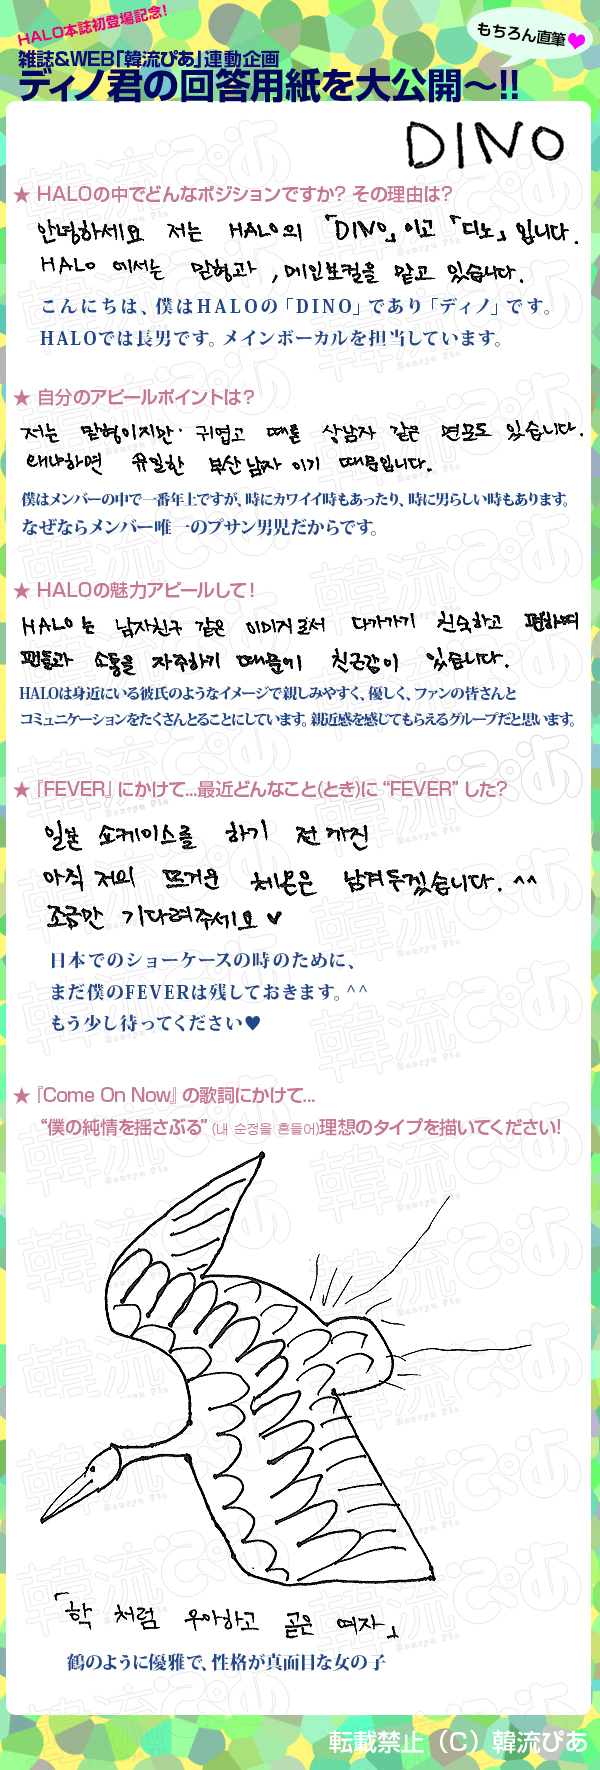 HALO本誌初登場記念!
雑誌&WEB「韓流ぴあ」連動企画
もちろん直筆
ディノ君の回答用紙を大公開～!!
DINO
★ HALOの中でどんなポジションですか? その理由は?
안녕하세요 저는 HALO의 「DINO」이고 「디노」입니다.
HALO 에서는 맏형과, 메인보컬을 맡고 있습니다.
こんにちは、僕はHALOの「DINO」であり「ディノ」です。
HALOでは長男です。メインボーカルを担当しています。
★ 自分のアピールポイントは?
저는 맏형이지만 귀엽고 때론 상남자 같은 면모도 있습니다.
왜냐하면 유일한 부산남자 이기 때문입니다.
僕はメンバーの中で一番年上ですが、時にカワイイ時もあったり、時に男らしい時もあります。
なぜならメンバー唯一のプサン男児だからです。
★ HALOの魅力アピールして!
HALO는 남자친구 같은 이미지로서 다가가기 친숙하고 편하며
팬들과 소통을 자주하기 때문에 친근감이 있습니다.
HALOは身近にいる彼氏のようなイメージで親しみやすく、優しく、ファンの皆さんと
コミュニケーションをたくさんとることにしています。親近感を感じてもらえるグループだと思います。
★『FEVER』にかけて...最近どんなこと(とき)に “FEVER” した?
일본 쇼케이스를 하기 전까진
아직 저의 뜨거운 체온은 남겨두겠습니다. ^^
조금만 기다려주세요 ♥
日本でのショーケースの時のために、
まだ僕のFEVERは残しておきます。^^
もう少し待ってください♥
★『Come On Now』の歌詞にかけて...
“僕の純情を揺さぶる” (내 순정을 흔들어)理想のタイプを描いてください!
「학 처럼 우아하고 곧은 여자」
鶴のように優雅で、性格が真面目な女の子
転載禁止 (C) 韓流ぴあ